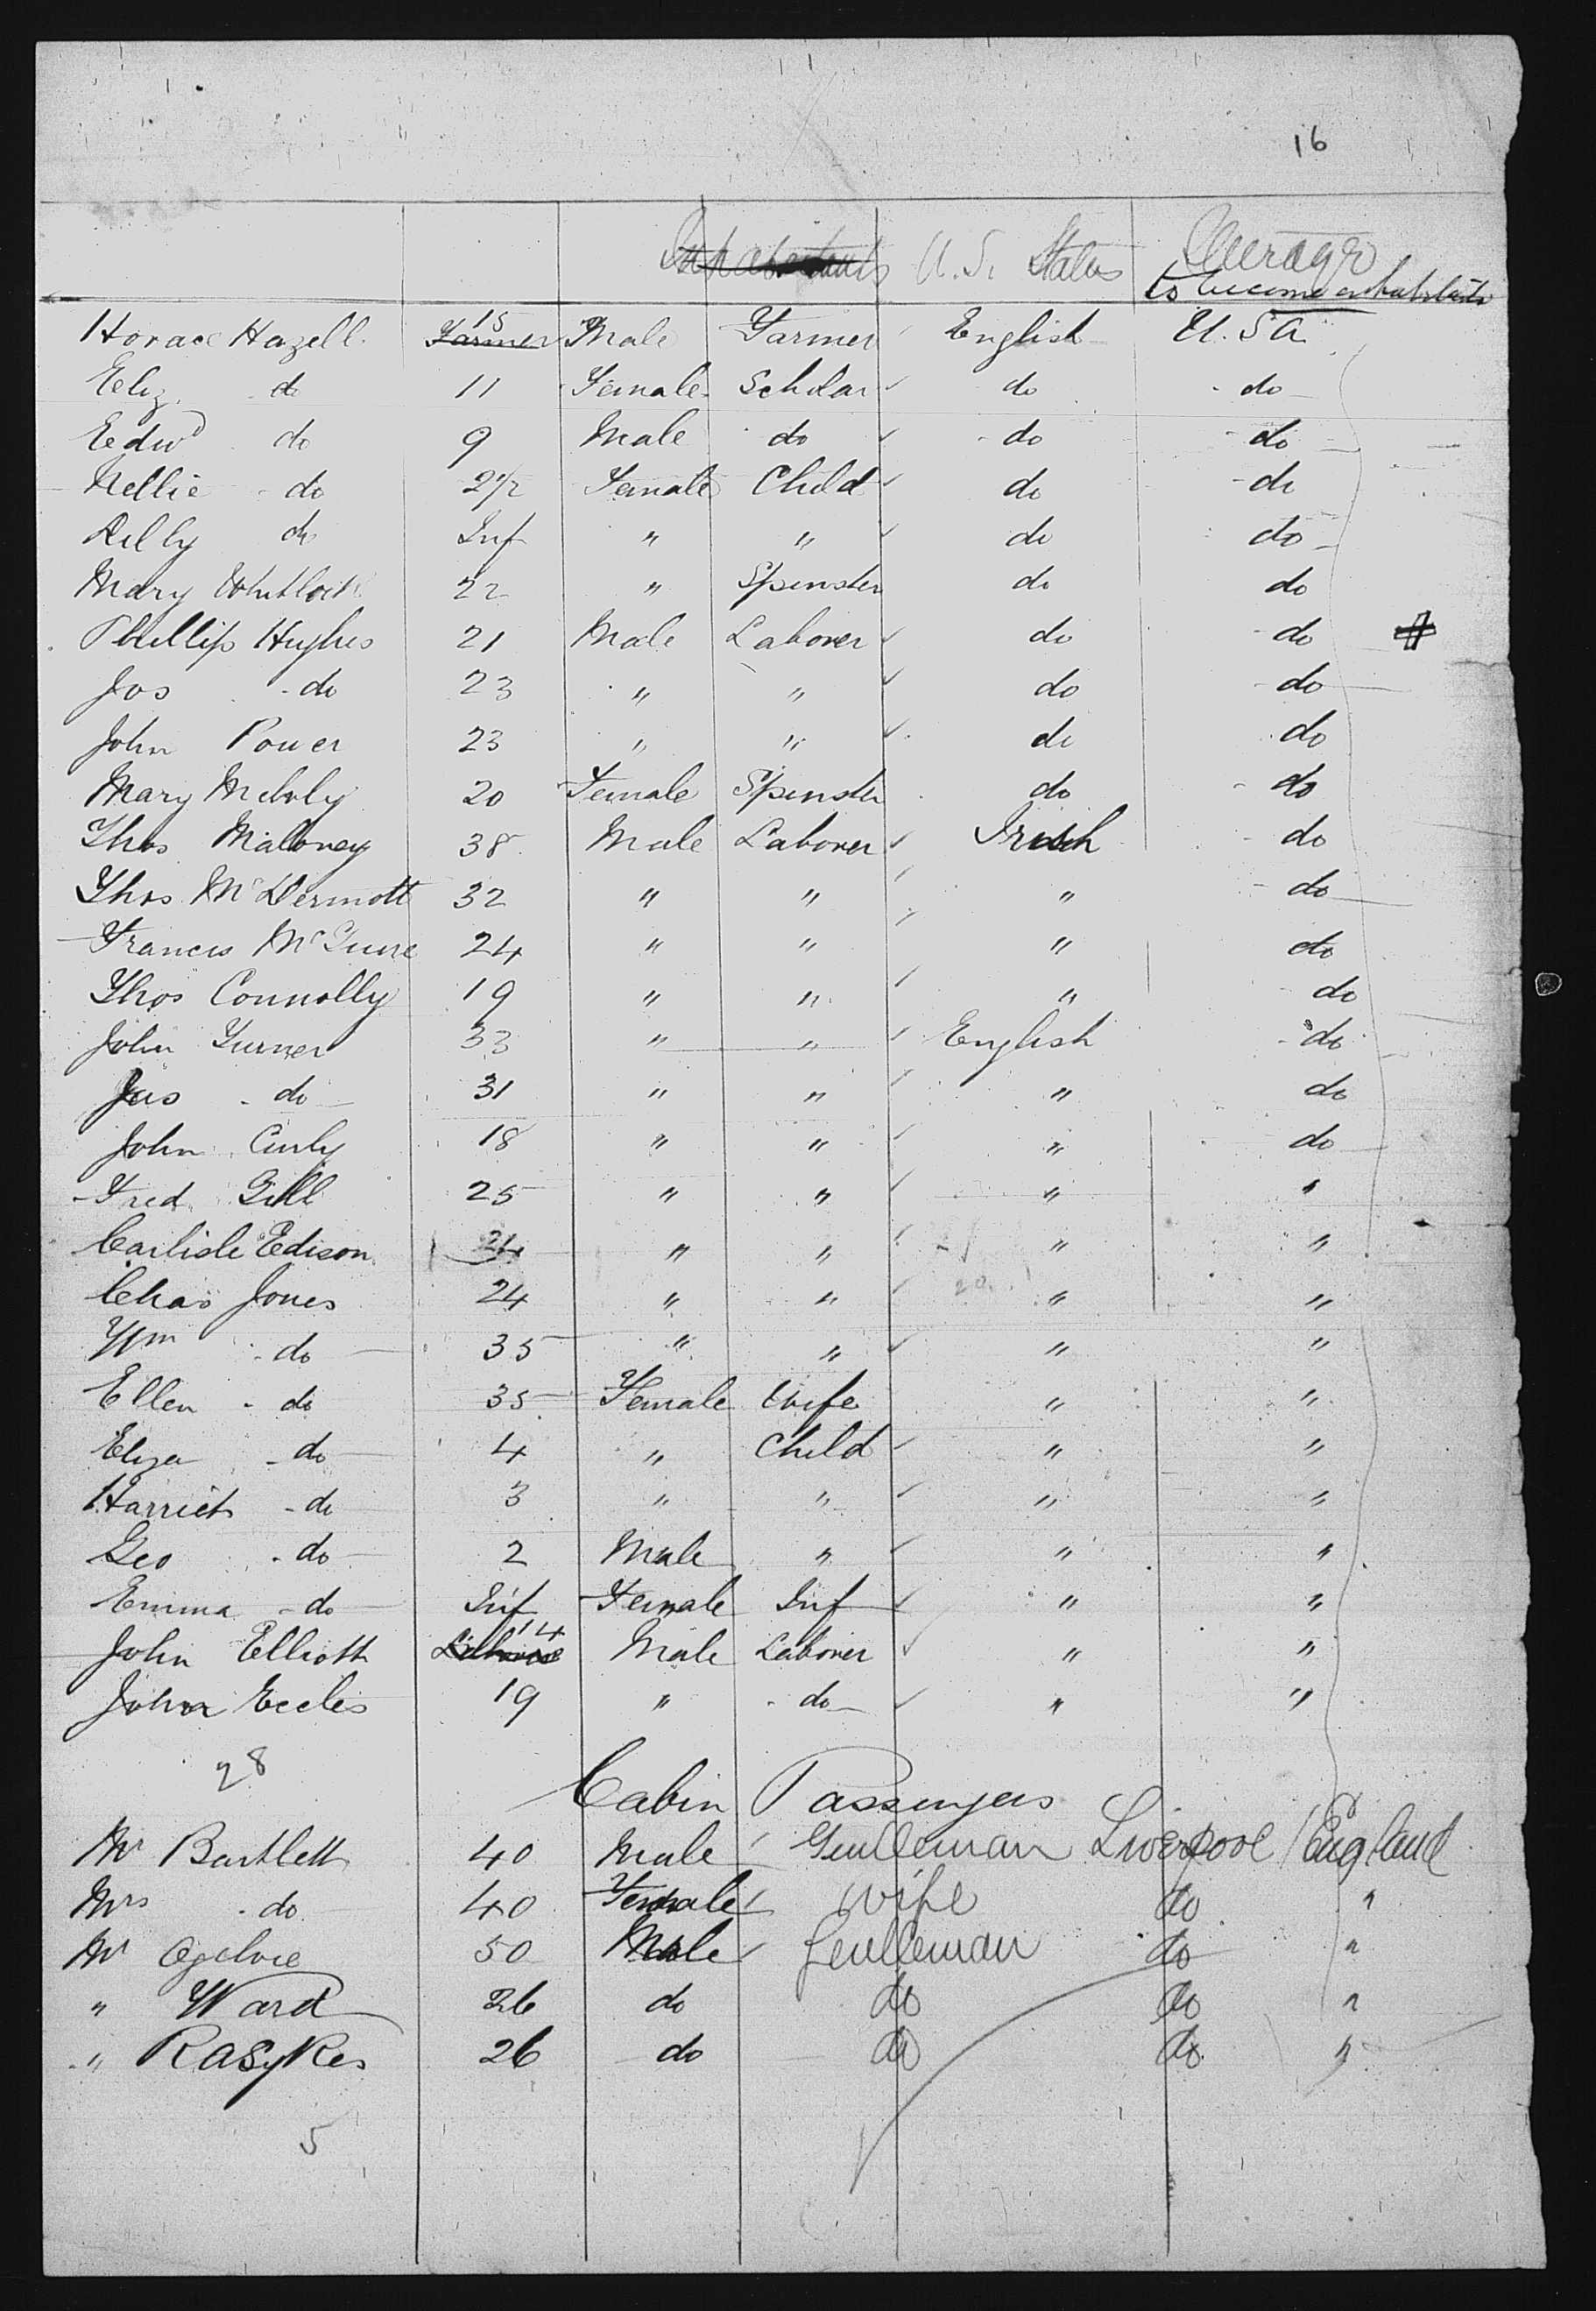 16
Inhabitants U. S. States
to become inhabitants
Horace Hazell Farmer 15 Male Farmer English U. S A
Eliz. do 11 Female Scholar do do
Edwd do 9 Male do do do
Nellie do 2 1/2 Female Child do do
do Inf " " do do
Mary Whitlock 22 " Spinster do do
Phillip Hughes 21 Male Laborer do do
Jos do 23 " " do do
John Power 23 " " do do
Mary 20 Female Spinster do do
Thos Maloney 38 Male Laborer Irish do
Thos McDermott 32 " " " do
Francis McGuire 24 " " " do
Thos Connolly 19 " " " do
John Turner 33 " " English do
Jas do 31 " " " do
John Curly 18 " " " do
Fred Gill 25 " " " "
Carlisle Edison 24 " " " "
Chas Jones 24 " " " "
Wm do 35 " " " "
Ellen do 35 Female Wife " "
Eliza do 4 " Child " "
Harriet do 3 " " " "
Geo do 2 Male " " "
Emma do Inf Female Inf " "
John Elliott 14 Male Laborer " "
John Eccles 19 " do " "
28
Cabin Passengers
Mr Bartlett 40 Male Gentleman Liverpool England
Mrs do 40 Female wife do "
Mr Ogilvie 50 Male Gentleman do "
" Ward 26 do do do "
" R A Sykes 26 do do do "
5